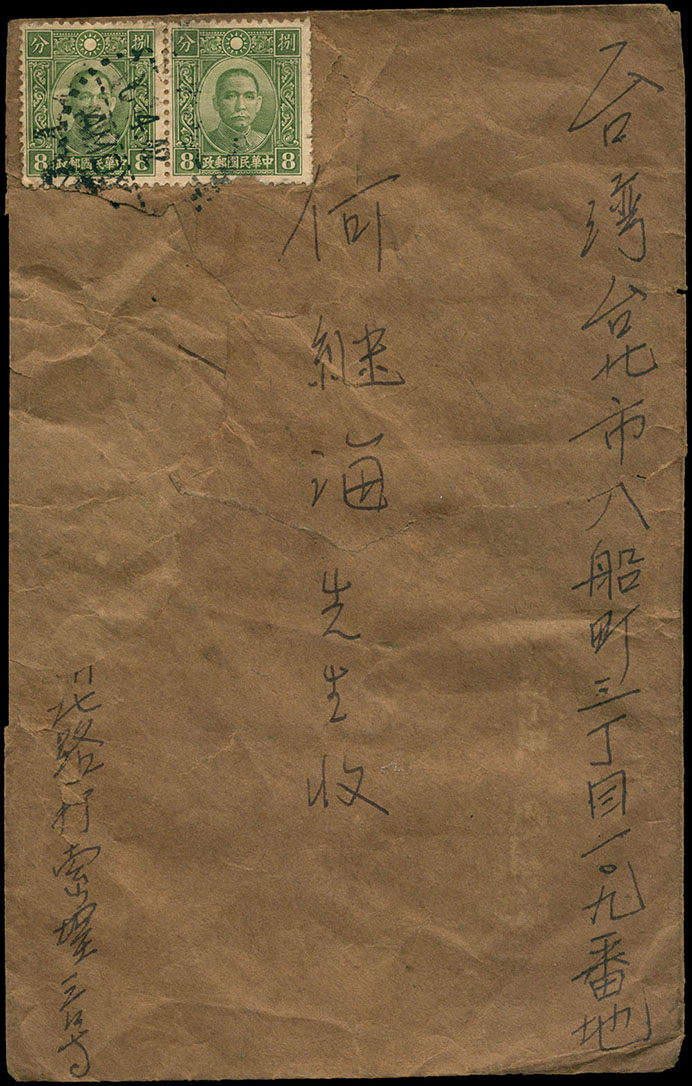 台灣台北市入船町三丁目一〇九番地
何継海先生收
北路
三号
分 捌
8 政郵國民華中 8
分 捌
8 政郵國民華中 8